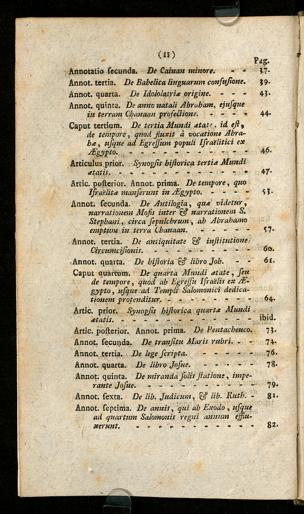 (11)
Pag.
Annotatio secunda. De Cainan minore. - - 37.
Annot. tertia. De Babelica linguarum confusione. 39.
Annot. quarta. De Idololatriæ origine. - - 43.
Annot. quinta. De anno natali Abraham, ejusque
in terram Chanaan profectione. - - - 44.
Caput tertium. De tertia Mundi ætate, id est,
de tempore, quod fluxit à vocatione Abra-
hæ, usque ad Egressum populi Israëlitici ex
Ægypto. - - - - - - - 46.
Articulus prior. Synopsis historica tertiæ Mundi
ætatis. - - - - - - - 47.
Artic. posterior. Annot. prima. De tempore, quo
Israëlitæ manserunt in Ægypto. - - - 53.
Annot. secunda. De Antilogia, quæ videtur,
narrationem Mosis inter & narrationem S.
Stephani, circa sepulchrum, ab Abrahamo
emptum in terra Chanaan. - - - - 57.
Annot. tertia. De antiquitate & institutione
Circumcisionis. - - - - - - 60.
Annot. quarta. De historia & libro Job. - - 61.
Caput quartum. De quarta Mundi ætate, seu
de tempore, quod ab Egressu Israëlis ex Æ-
gypto, usque ad Templi Salomonici dedica-
tionem protenditur. - - - - - 64.
Artic. prior. Synopsis historica quartæ Mundi
ætatis. - - - - - - - ibid.
Artic. posterior. Annot. prima. De Pentateuco. 73.
Annot. secunda. De transitu Maris rubri. - - 74.
Annot. tertia. De lege scripta. - - - - 76.
Annot. quarta. De libro Josue. - - - - 78.
Annot. quinta. De miranda solis statione, impe-
rante Josue. - - - - - - 79.
Annot. sexta. De lib. Judicum, & lib. Ruth. - 81.
Annot. septima. De annis, qui ab Exodo, usque
ad quartum Salomonis regis annum efflu-
xerunt. - - - - - - - 82.